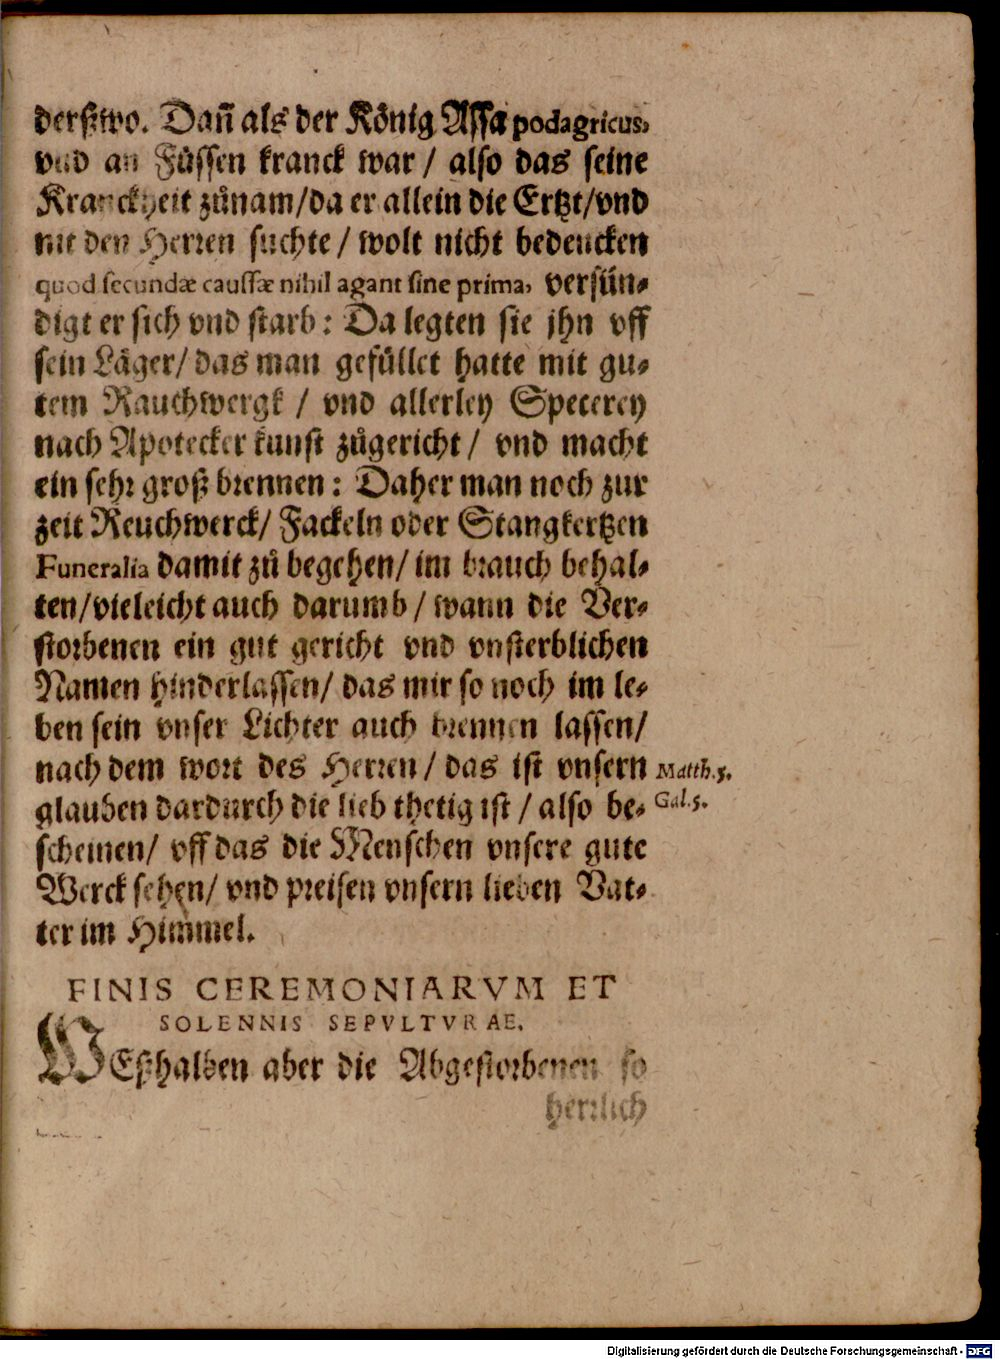 derßwo. Dañ als der König Assa podagricus,
vnd an Füssen kranck war / also das seine
Kranckheit zůnam/da er allein die Ertzt/vnd
nit den Herren suchte / wolt nicht bedencken
quod secundæ caussæ nihil agant sine prima, versün-
digt er sich vnd starb : Da legten sie jhn vff
sein Läger/ das man gefüllet hatte mit gu-
tem Rauchwergk / vnd allerley Specerey
nach Apotecker kunst zůgericht / vnd macht
ein sehr groß brennen : Daher man noch zur
zeit Reuchwerck/ Fackeln oder Stangkertzen
Funeralia damit zů begehen/ im brauch behal-
ten/vieleicht auch darumb / wann die Ver-
storbenen ein gut gericht vnd vnsterblichen
Namen hinderlassen/ das mir so noch im le-
ben sein vnser Lichter auch brennen lassen/
nach dem wort des Herren / das ist vnsern Matth.5.
glauben dardurch die lieb thetig ist / also be- Gal.5.
scheinen/ vff das die Menschen vnsere gute
Werck sehen/ vnd preisen vnsern lieben Vat-
ter im Himmel.
FINIS CEREMONIARVM ET
SOLENNIS SEPVLTVRAE.
WEßhalben aber die Abgestorbenen so
herrlich
Digitalisierung gefördert durch die Deutsche Forschungsgemeinschaft - DFG